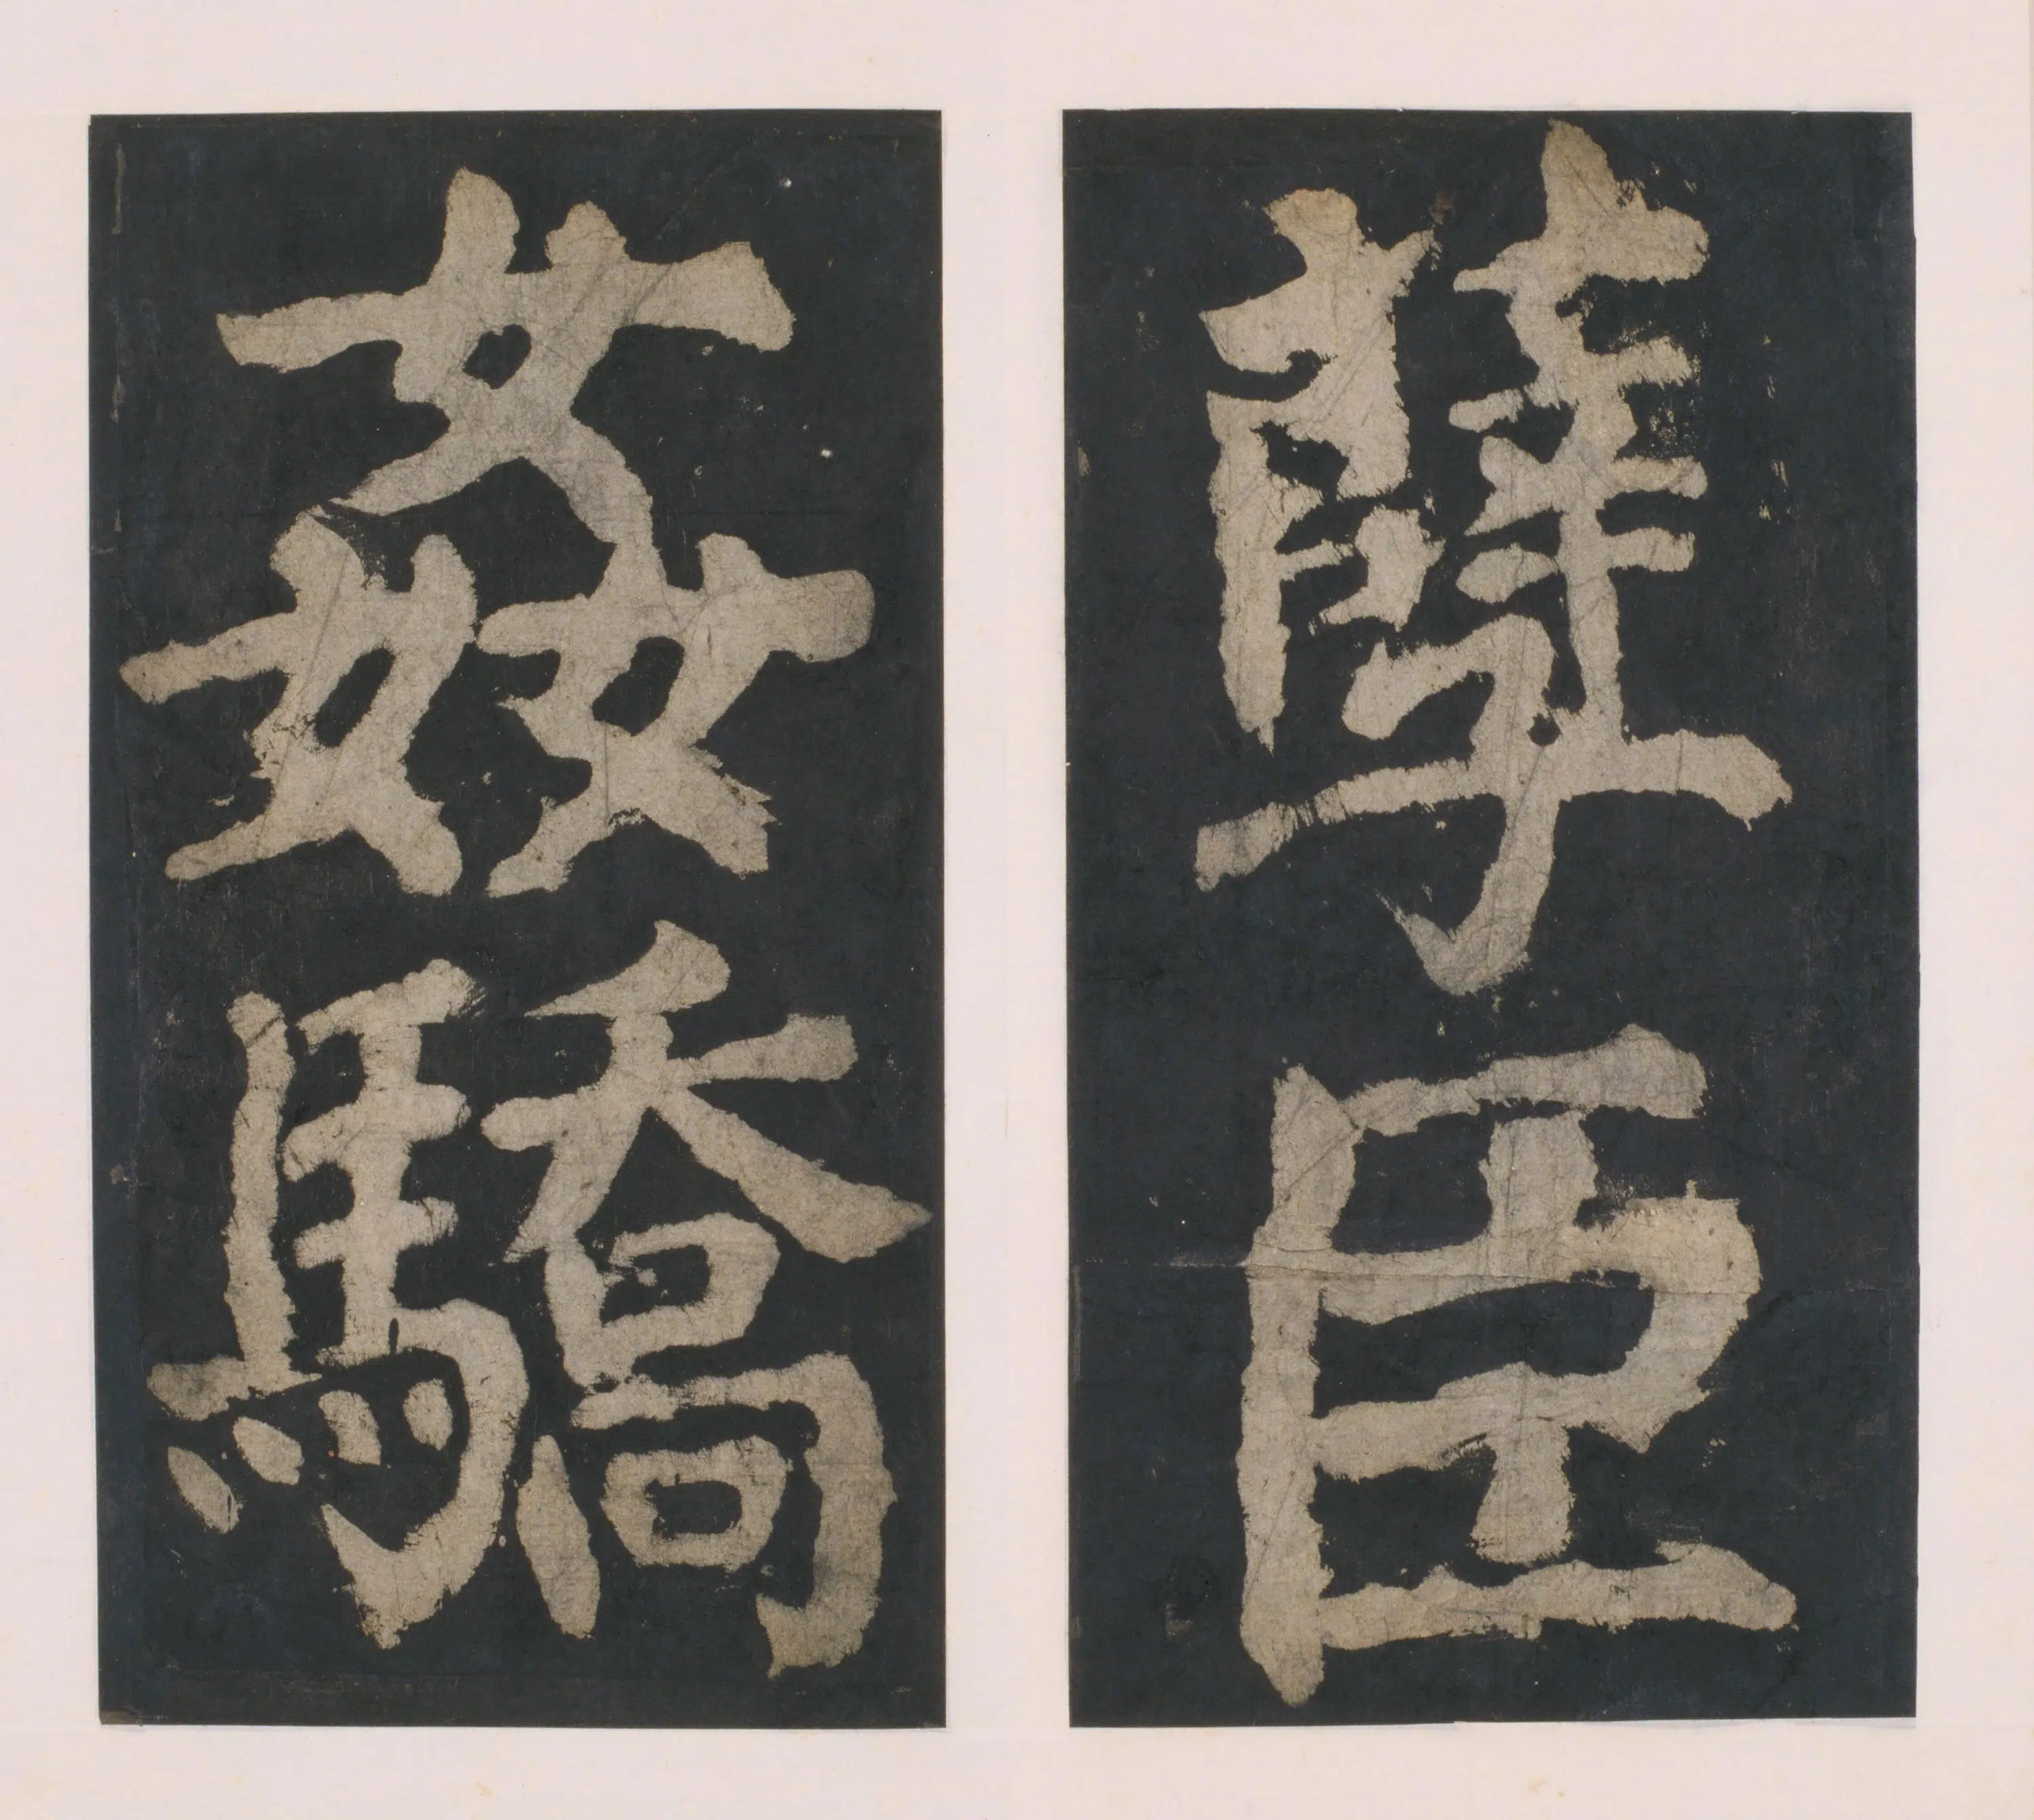 孽臣
姦驕